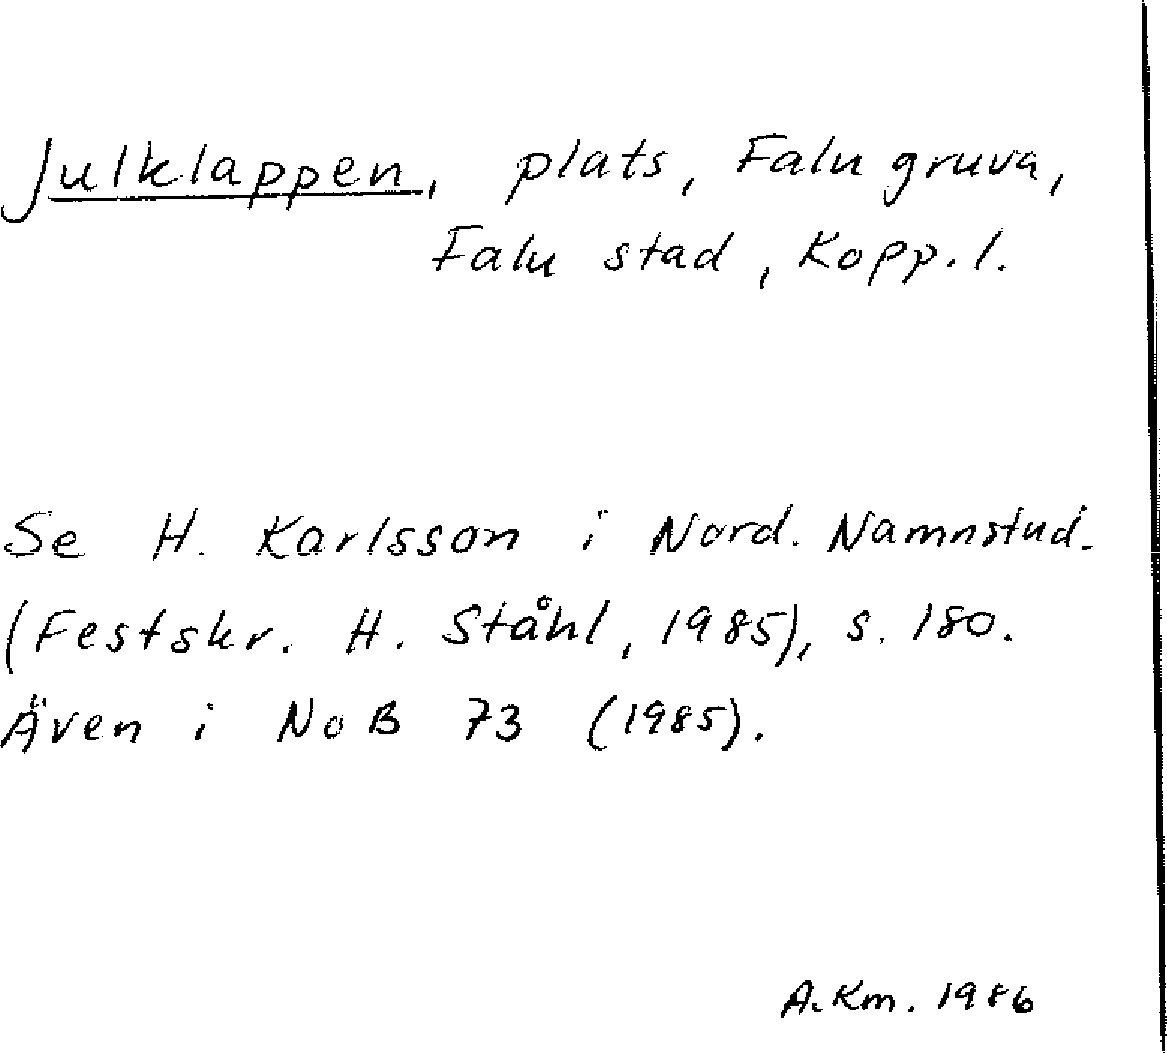 Julklappen, plats, Falu gruva,
Falu stad, Kopp. l.
Se H. Karlsson i Nord. Namnstud.
(Festskr. H. Ståhl, 1985), s. 180.
Även i NoB 73 (1985).
A. Km. 1986